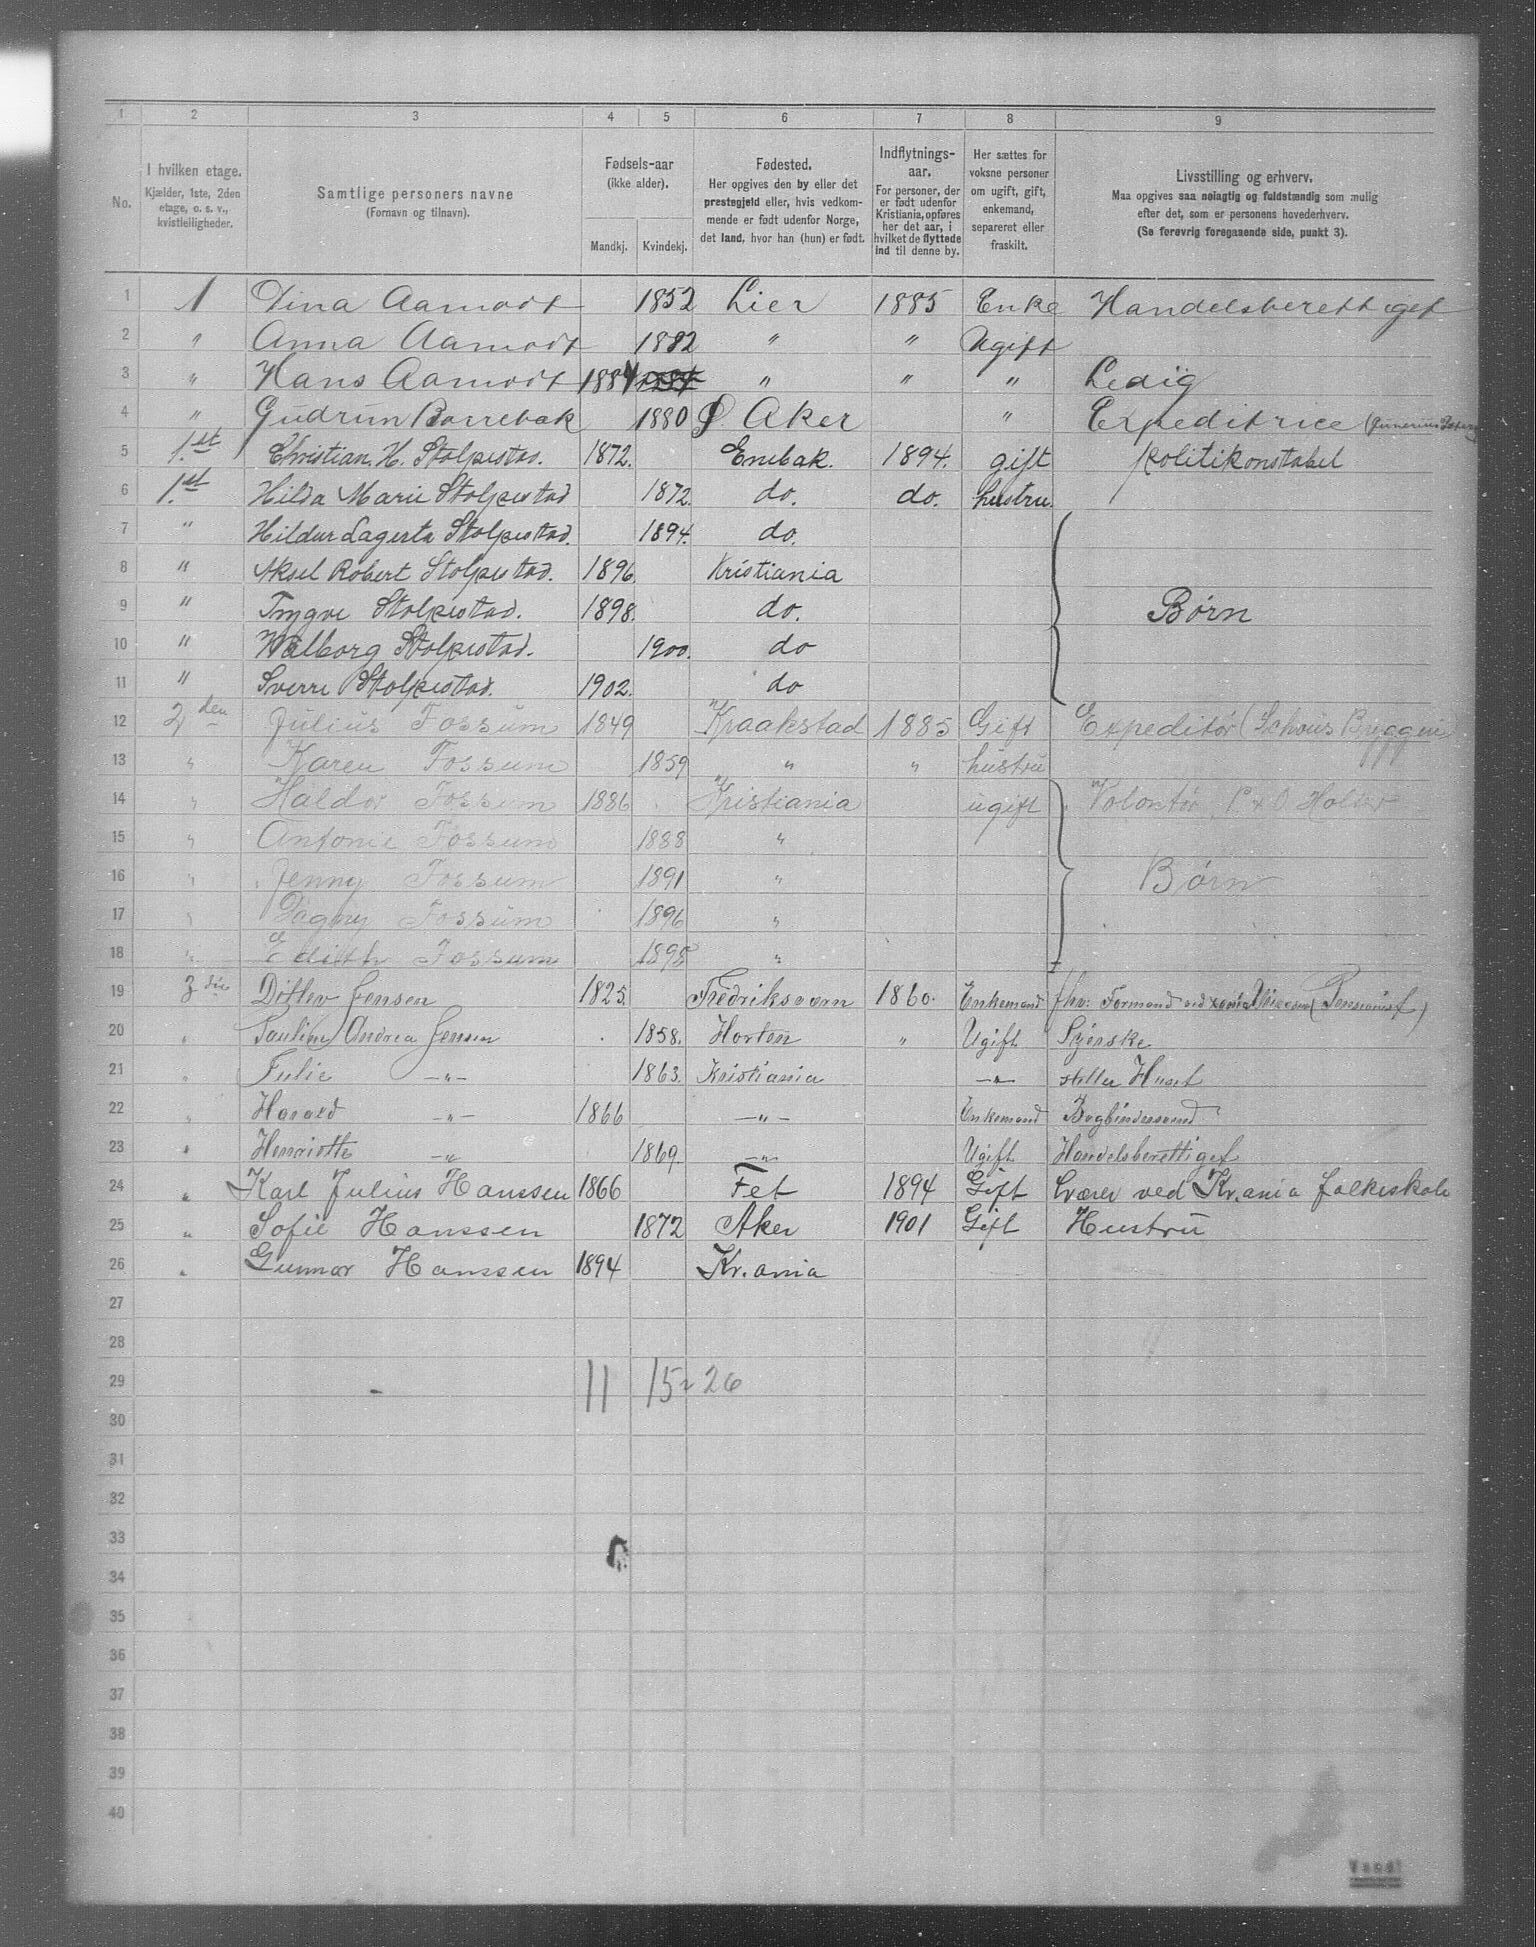 1 2 3 4 5 6 7 8 9
No.
I hvilken etage.
Kjælder, 1ste, 2den
etage, o. s. v.,
kvistleiligheder.
Samtlige personers navne
(Fornavn og tilnavn).
Fødsels-aar
(ikke alder).
Mandkj. Kvindekj.
Fødested.
Her opgives den by eller det
prestegjeld eller, hvis vedkom-
mende er født udenfor Norge,
det land, hvor han (hun) er født.
Indflytnings-
aar.
For personer, der
er født udenfor
Kristiania, opføres
her det aar, i
hvilket de flyttede
ind til denne by.
Her sættes for
voksne personer
om ugift, gift,
enkemand,
separeret eller
fraskilt.
Livsstilling og erhverv.
Maa opgives saa nøiagtig og fuldstændig som mulig
efter det, som er personens hovederhverv.
(Se forøvrig foregaaende side, punkt 3).
1 1 Dina Aamodt 1852 Lier 1885 Enke Handelsberettiget
2 " Anna Aamodt 1882 " " Ugift
3 " Hans Aamodt 1884 " " " Ledig
4 " Gudrun Borrebæk 1880 Ø. Aker " Expeditrice
5 1.st Christian. H. Stolpestad. 1872. Enebak. 1894. gift politikonstabel
6 1.st Hilda Marie Stolpestad 1872. do. do. hustru.
7 " Hildur Lagerta Stolpestad. 1894. do.
8 " Aksel Robert Stolpestad. 1896. Kristiania
9 " Trygve Stolpestad. 1898. do. Børn
10 " Walborg Stolpestad. 1900. do
11 " Sverre Stolpestad. 1902. do
12 2den Julius Fossum 1849 Kraakstad 1885 Gift Expeditør (Schous Byggeri
13 " Karen Fossum 1859 " " hustru
14 " Haldor Fossum 1886 Kristiania ugift Volontør P & O Holter
15 " Antonie Fossum 1888 "
16 " Jenny Fossum 1891 " Børn
17 " Dagny Fossum 1896 "
18 " Edith Fossum 1898 "
19 3die Ditlev Jensen 1825. Fredriksværn 1860. Enkemand fhv. Formand ved (Pensionist)
20 " Pauline Andrea Jensen 1858. Horten " Ugift Syerske
21 " Julie —"— 1863. Kristiania —"— steller Huset
22 " Harald —"— 1866 —"— Enkemand Bogbindersvend
23 " Henriette —"— 1869. —"— Ugift Handelsberettiget
24 " Karl Julius Hanssen 1866 Fet 1894 Gift Lærer ved Kr.ania folkeskole
25 " Sofie Hanssen 1872 Aker 1901 Gift Hustru
26 " Gunnar Hanssen 1894 Kr.ania
27
28
29 11 15 26
30
31
32
33
34
35
36
37
38
39
40
Vend!